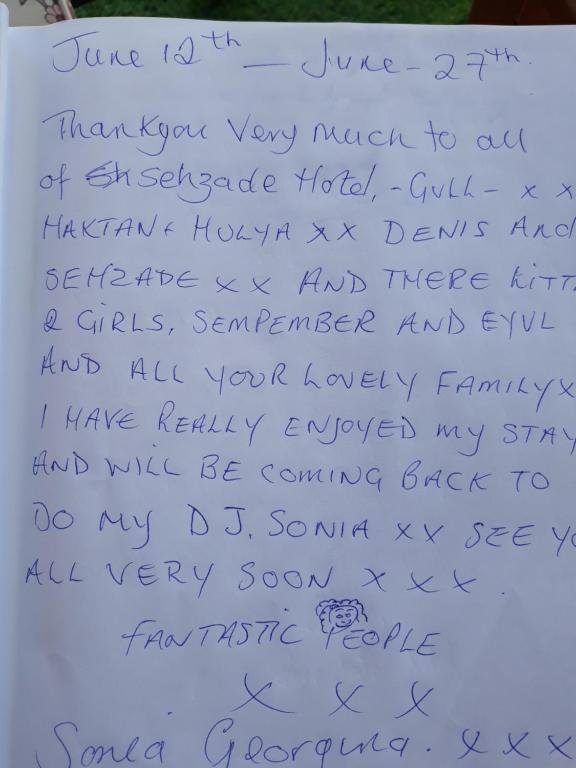 June 12th — June - 27th.
Thankyou Very much to all
of Sehzade Hotel, - GULL - x x
HAKTAN & HULYA xx DENIS AND
SEHZADE x x AND THERE KITT
2 GIRLS, SEMPEMBER AND EYUL
AND ALL YOUR LOVELY FAMILY x
I HAVE REALLY ENJOYED my STAY
AND WILL BE COMING BACK TO
DO MY DJ. SONIA xx SEE YO
ALL VERY SOON x x x.
FANTASTIC PEOPLE
x x x
Sonia Georgina. x x x